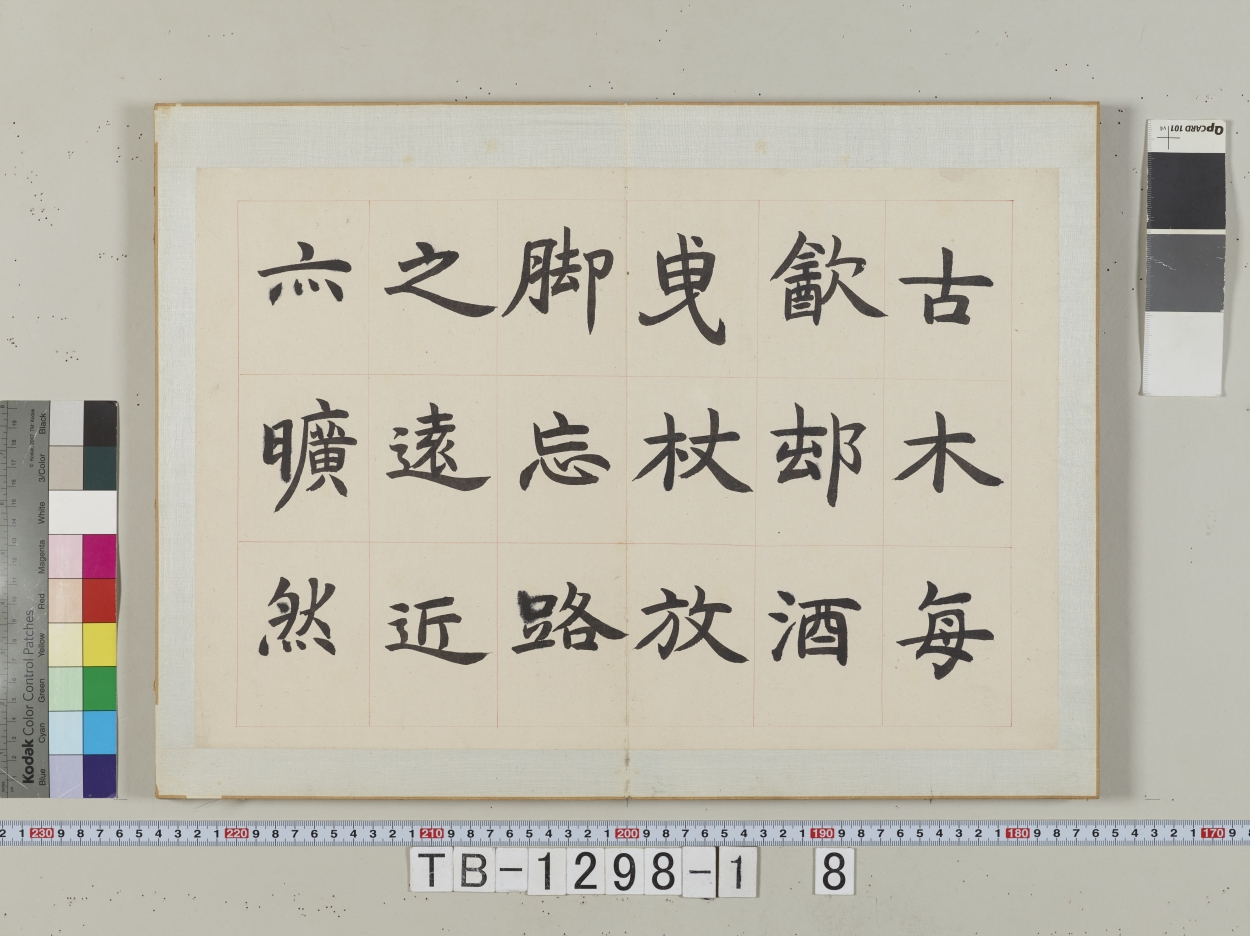 古木每
㱃邨酒
曳杖放
脚忘路
之遠近
亦曠然
QpCARD 101 v4
Kodak Color Control Patches
Blue Cyan Green Yellow Red Magenta White 3/Color Black
2 1 230 9 8 7 6 5 4 3 2 1 220 9 8 7 6 5 4 3 2 1 210 9 8 7 6 5 4 3 2 1 200 9 8 7 6 5 4 3 2 1 190 9 8 7 6 5 4 3 2 1 180 9 8 7 6 5 4 3 2 1 170 9
TB-1298-1 8